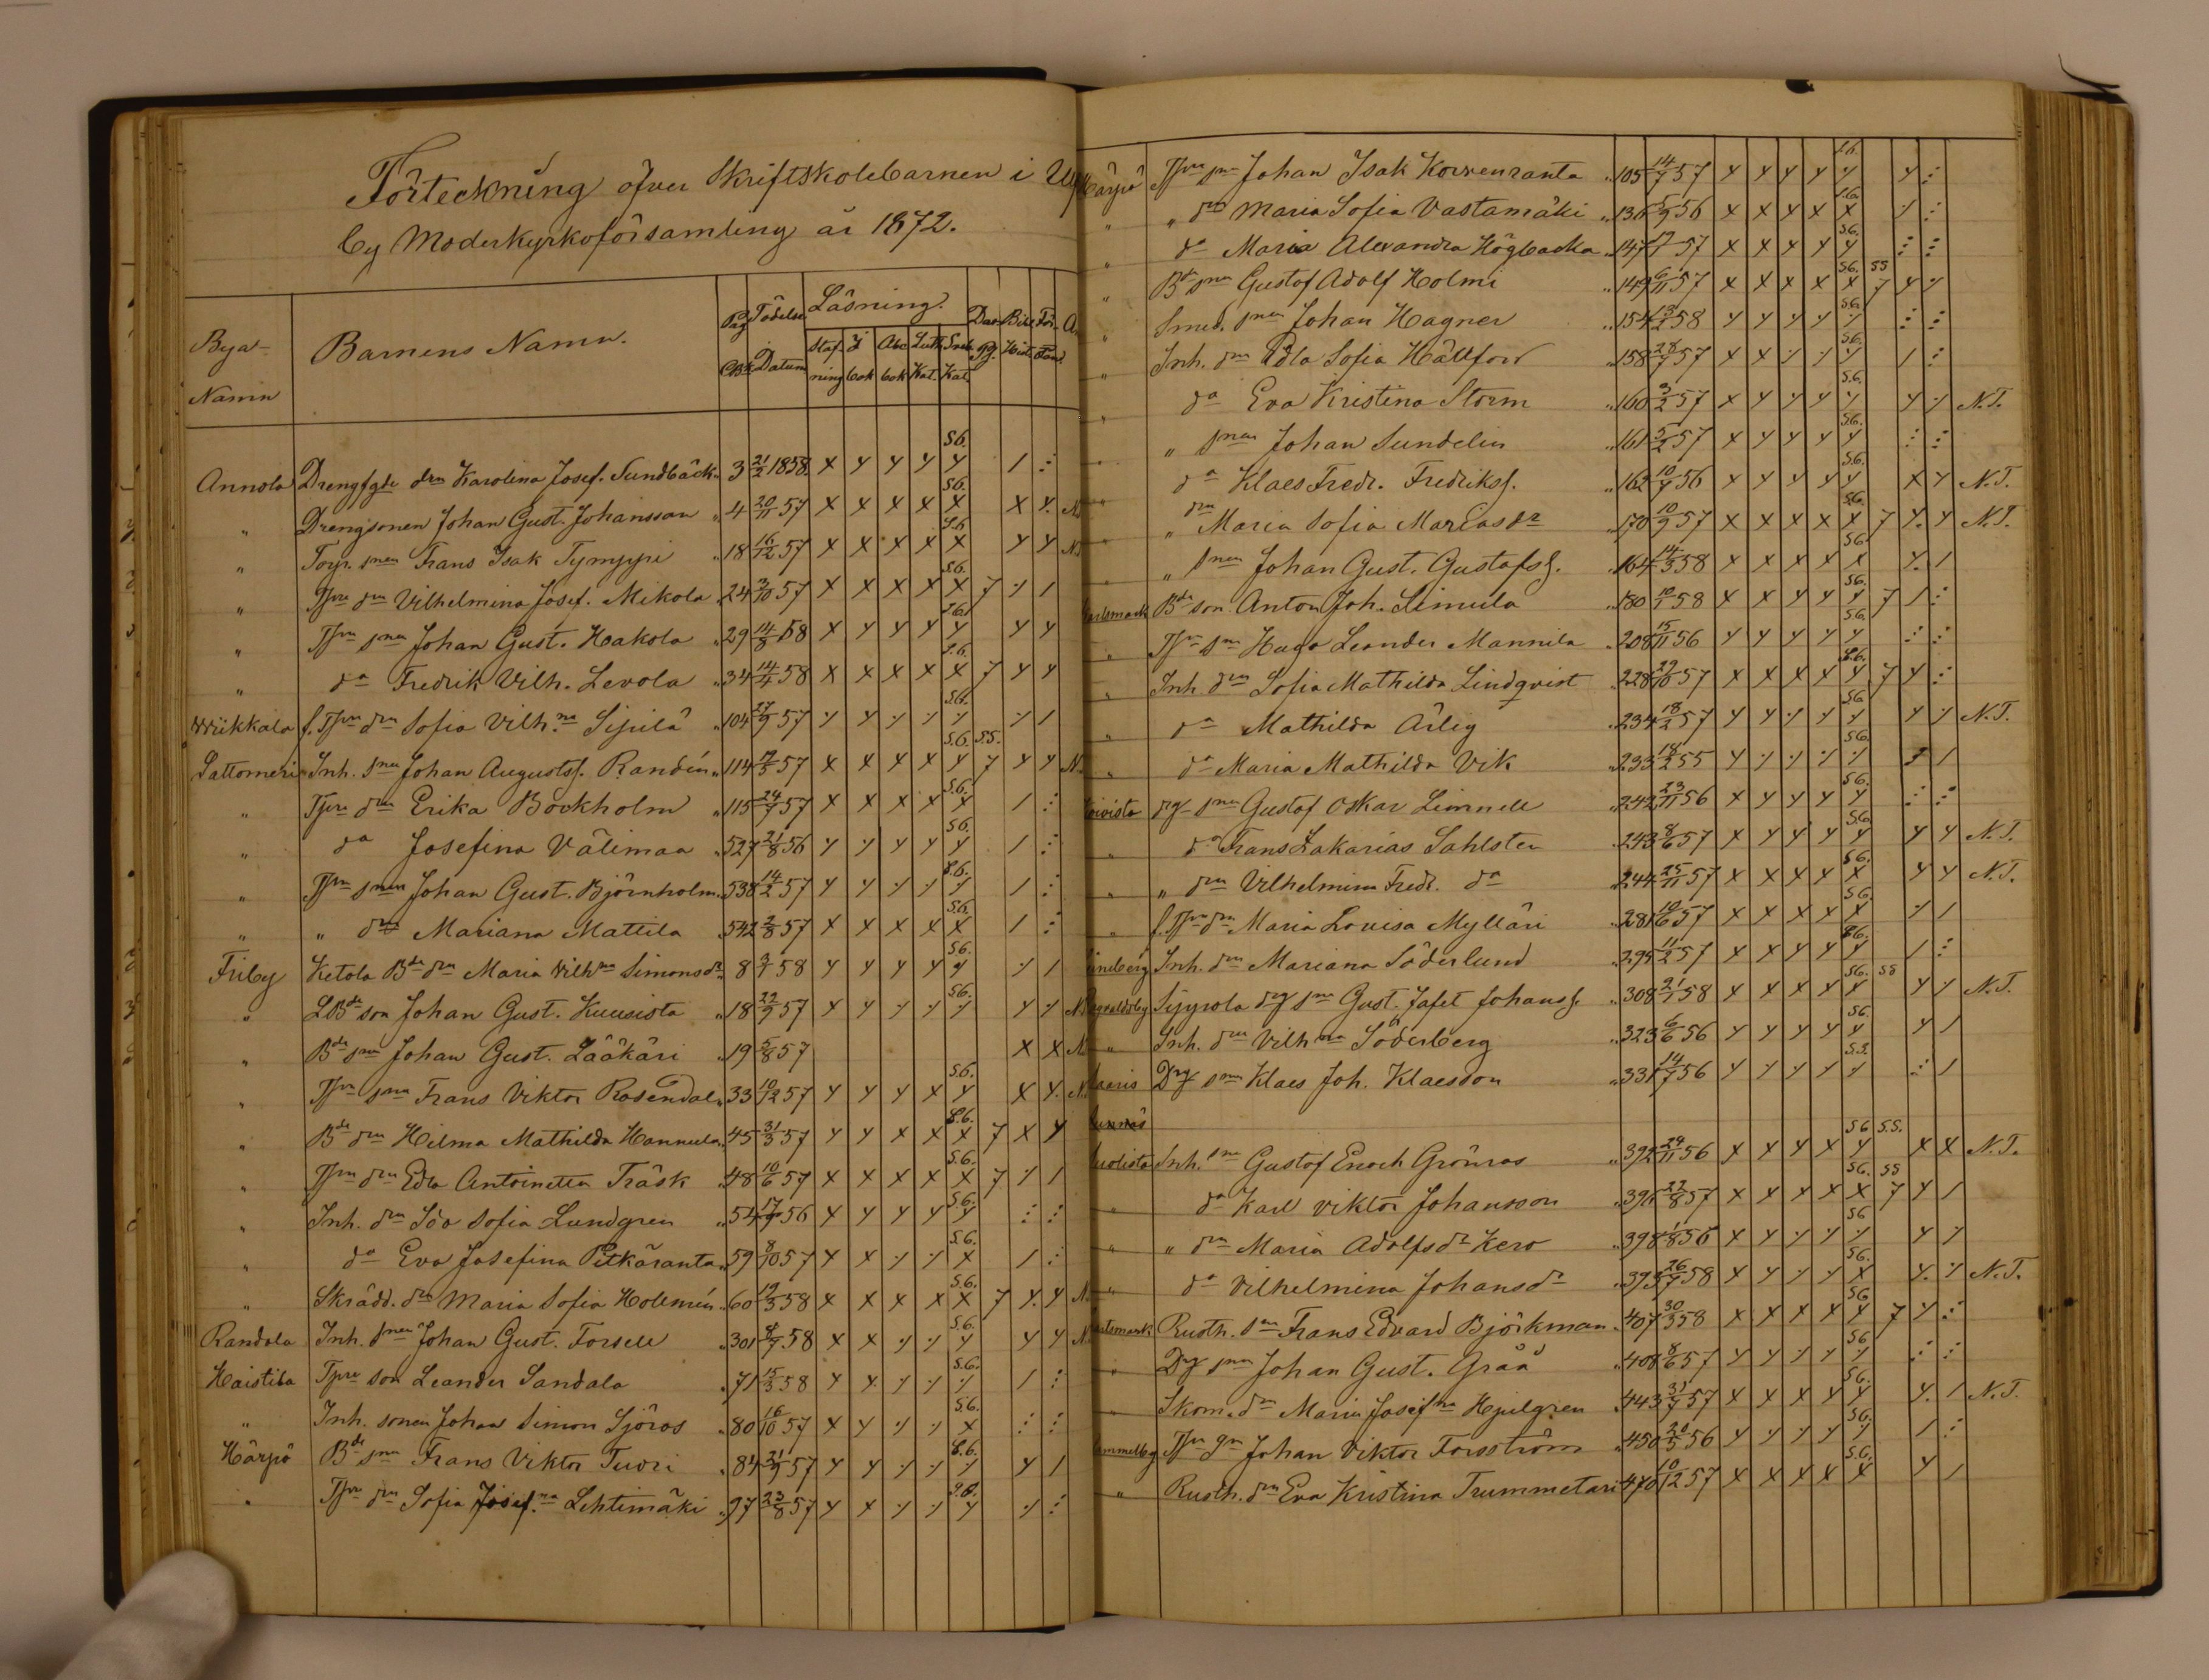 Förteckning öfver Skriftskolebarnen i
by Moderkyrkoförsamling år 1872.
Bya- Namn Barnens Namn. Pag CBk Födelse Datum Läsning. Staf- ning I bok Abc bok Luth Kat. Sveb Kat. Dav Ps. Bibl. Hist. För- stånd
Annola Drengfgde drn Karolina Josef. Sundbäck 3 21/2 1858. x y y y y S.6. / :
" Drengsonen Johan Gust. Johansson " 4 20/11 57 x x x x x S.6. x y.
" Torp. snen Frans Isak Tymypi " 18 16/12 57 x x x x x S.6. y y
" Tprn drn Vilhelmina Josef. Mikola " 24 3/10 57 x x x x x S.6. 7 ·/ /
" Tprn snen Johan Gust. Hakola " 29 14/8 58 x y y y y S.6. y y
" da Fredrik Vilh. Levola " 34 14/4 58 x x x x x S.6. 7 y y
Wiikkala f. Tprn drn Sofia Vilh.na Sipilä " 104 27/9 57 ·/ y ·/ ·/ ·/ S.6. ·/ /
Lattomeri Inh. snen Johan Augustsf. Randén " 114 57 x x x x y S.6. S.S. 7 y y
" Tprn drn Erika Böckholm " 115 24/7 57 x x x x y S.6. / :
" da Josefina Välimaa " 527 21/8 56 y ·/ y y y S.6. / :
" Tprn snen Johan Gust. Björnholm 538 14/2 57 y y ·/ ·/ ·/ S.6. / :
" " drn Mariana Mattila 542 2/8 57 x x x x x S.6. / :
Friby Ketola Bde drn Maria Vilhna Simonsdr 8 3/1 58 y y y y y S.6. ·/ /
" LBde son Johan Gust. Kuusisto " 18 22/9 57 x y ·/ ·/ ·/ S.6. y ·/
" Bde snen Johan Gust. Lääkäri " 19 5/8 57 x x
" Tprn snen Frans Viktor Rosendal " 33 10/12 57 y y y x y S.6. x y.
" Bde drn Hilma Mathilda Hannula " 45 31/3 57 y y x x x S.6. 7 x y
" Tprn drn Edla Antoinetta Träsk " 48 10/6 57 x x x x x S.6. 7 ·/ /
" Inh. drn Sofia Lundgren " 54 17/9 56 x y y y y S.6. : :
" da Eva Josefina Pitkäranta " 59 8/10 57 x x ·/ ·/ x S.6. / :
" Skrädd. drn Maria Sofia Holmén " 60 19/3 58 x x x x x S.6. 7 y. y
Randala Inh. snen Johan Gust. Forsell " 301 58 x x ·/ ·/ y S.6. y y
Haistila Tprn son Leander Sandala " 71 15/3 58 y y ·/ ·/ ·/ S.6. / :
" Inh. sonen Johan Simon Sjöros " 80 16/10 57 x y ·/ ·/ x S.6. : :
Härpö Bde snen Frans Viktor Tuori " 84 21/9 57 y y ·/ ·/ ·/ S.6. y /
" Tprn drn Sofia Josef.na Lehtimäki " 97 23/8 57 y x ·/ ·/ y S.6. ·/ :
Härpö Tprn snen Johan Isak Korvenranta " 105 14/7 57 y y y y y S.6. y :
" " drn Maria Sofia Vastamäki " 136 5/9 56 x x y x x S.6. / :
" da Maria Alexandra Högbacka " 147 57 x x y y y S.6. : :
" Bde snen Gustof Adolf Holmi " 149 6/11 57 x x x x x S.6. SS 7 y y
" Smed. snen Johan Hagner " 154 13/2 58 y y y y ·/ S.6. : :
" Inh. drn Edla Sofia Hällfors 158 28/7 57 x x ·/ ·/ ·/ S.6. / :
" da Eva Kristina Storm " 160 3/2 57 x y y y ·/ S.6. y ·/ N.T.
" " snen Johan Sundelin " 161 5/2 57 x y y y y S.6. : :
" da Klaes Fredr. Fredriksf. " 162 10/4 56 y y y y y S.6. x y N.T.
" " drn Maria Sofia Mariasdr " 170 10/9 57 x x x x x S.6. 7 y. y N.T.
" " snen Johan Gust. Gustafsf. 164 14/3 58 x x x x x S.6. y. /
Bde son Anton Joh. Simula " 180 10/1 58 x x x y y S.6. 7 / :
" Tprn snen Hugo Leander Mannila " 208 15/11 56 y y y y y S.6. : :
" Inh drn Sofia Mathilda Lindqvist " 228 29/10 57 x x x x y S.6. 7 y :
" da Mathilda Ärlig " 234 18/2 57 y y ·/ ·/ y S.6. y ·/ N.T.
" da Maria Mathilda Vik " 233 18/2 55 y ·/ ·/ ·/ ·/ S.6. /
Koivisto drg snen Gustof Oskar Limnell " 242 23/11 56 x y y y y S.6. : :
" da Frans Zakarias Sahlsten " 243 8/6 57 x y y y y S.6. y y N.T.
" " drn Vilhelmina Fredr. da " 244 25/11 57 x x x x x S.6. y y N.T.
" f. Tprn drn Maria Lovisa Mylläri " 281 10/6 57 x x x x x S.6. ·/ /
Inh. drn Mariana Söderlund " 295 11/2 57 x x x y y S.6. / :
Ragvaldsby Sippola drg snen Gust. Jafet Johansf. " 308 21/1 58 x x x x x S.6. SS y ·/ N.T.
" Inh. drn Vilhna Söderberg " 323 6/6 56 y y y y y S.6. y /
Drg snen Klaes Joh. Klaesson " 331 14/7 56 y ·/ ·/ ·/ ·/ S.S. : /
Inh. snen Gustof Enoch Grönros " 392 24/11 56 x x y x y S.6 S.S. x x N.T.
" da Karl Viktor Johansson " 396 22/8 57 x x x x x S.6. SS 7 y /
" " drn Maria Adolfsdr Kero " 398 1/8 56 x y ·/ ·/ ·/ S.6 y ·/
" da Vilhelmina Johansdr " 393 26/7 58 x y y y x S.6. y. ·/ N.T.
Rusth. snen Frans Edvard Björkman " 407 30/3 58 x x x x y S.6 7 y :
" Drg snen Johan Gust. Gråå " 408 8/6 57 y y y y ·/ S.6 : :
" Skom. drn Maria Josefna Hjulgren " 443 31/7 57 x x x x y S.6. y. / N.T.
Tprn sn Johan Viktor Forsström " 450 20/5 56 y y y y y S.6. / :
" Rusth. drn Eva Kristina Trummetari 470 10/12 57 x x x x x S.6. y /